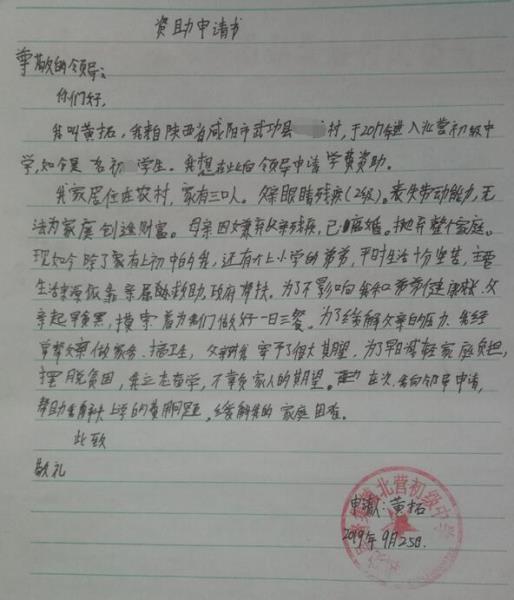 资助申请书
尊敬的领导:
你们好,
我叫黄拓,我来自陕西省咸阳市武功县村,于2017年进入北营初级中
学,如今是一名初学生。我想在此向领导申请学费资助。
我家居住在农村,家有三口人。父亲眼睛残疾(2级)。丧失劳动能力,无
法为家庭创造财富。母亲因嫌弃父亲残疾,已离婚。抛弃整个家庭。
现如今除了家有上初中的我,还有个上小学的弟弟,平时生活十分艰苦,主要
生活来源依靠亲属救助,政府帮扶。为了不影响我和弟弟健康成长,父
亲起早贪黑,摸索着为我们做好一日三餐。为了缓解父亲的压力,我经
常帮父亲做家务,搞卫生,父亲对我寄予了很大期望,为了早日减轻家庭负担,
摆脱贫困,我立志苦学,不辜负家人的期望。在次,我向领导申请,
帮助我解决上学的费用问题,缓解我的家庭困难。
此致
敬礼
申请人:黄拓
2019年9月25日.
北营初级中学